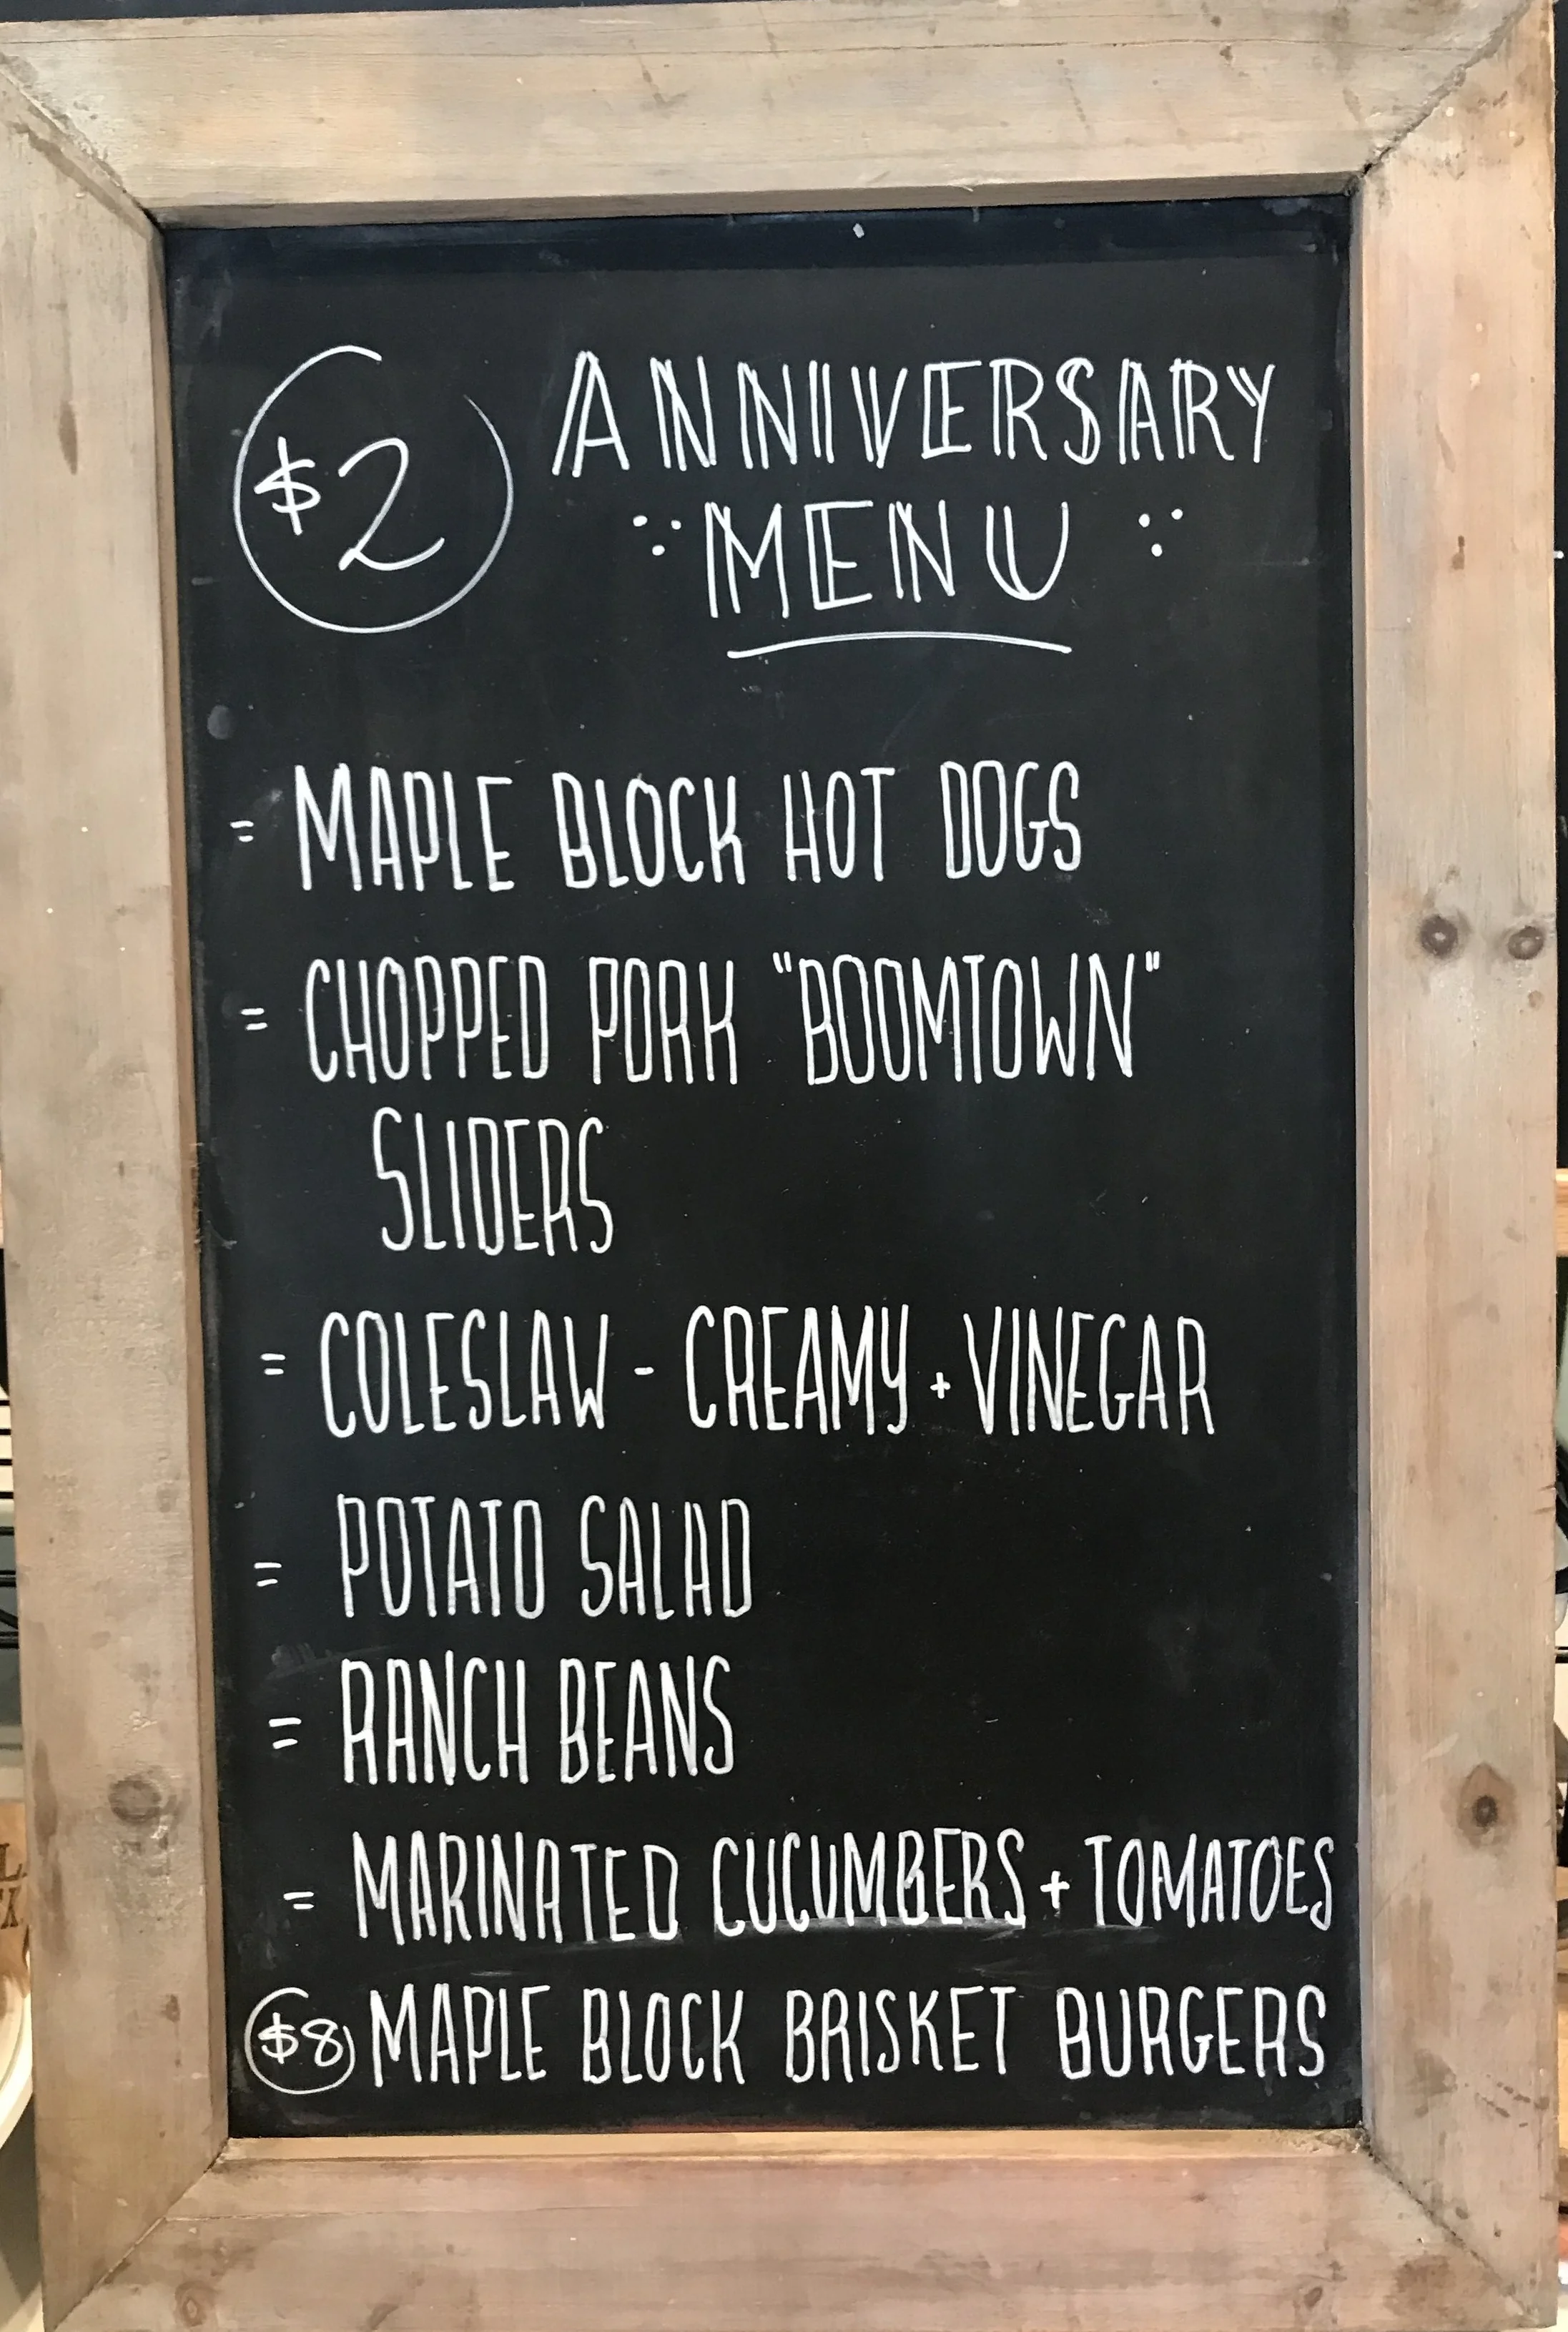 $2 ANNIVERSARY
MENU
= MAPLE BLOCK HOT DOGS
= CHOPPED PORK "BOOMTOWN"
SLIDERS
= COLESLAW - CREAMY + VINEGAR
= POTATO SALAD
= RANCH BEANS
= MARINATED CUCUMBERS + TOMATOES
$8 MAPLE BLOCK BRISKET BURGERS